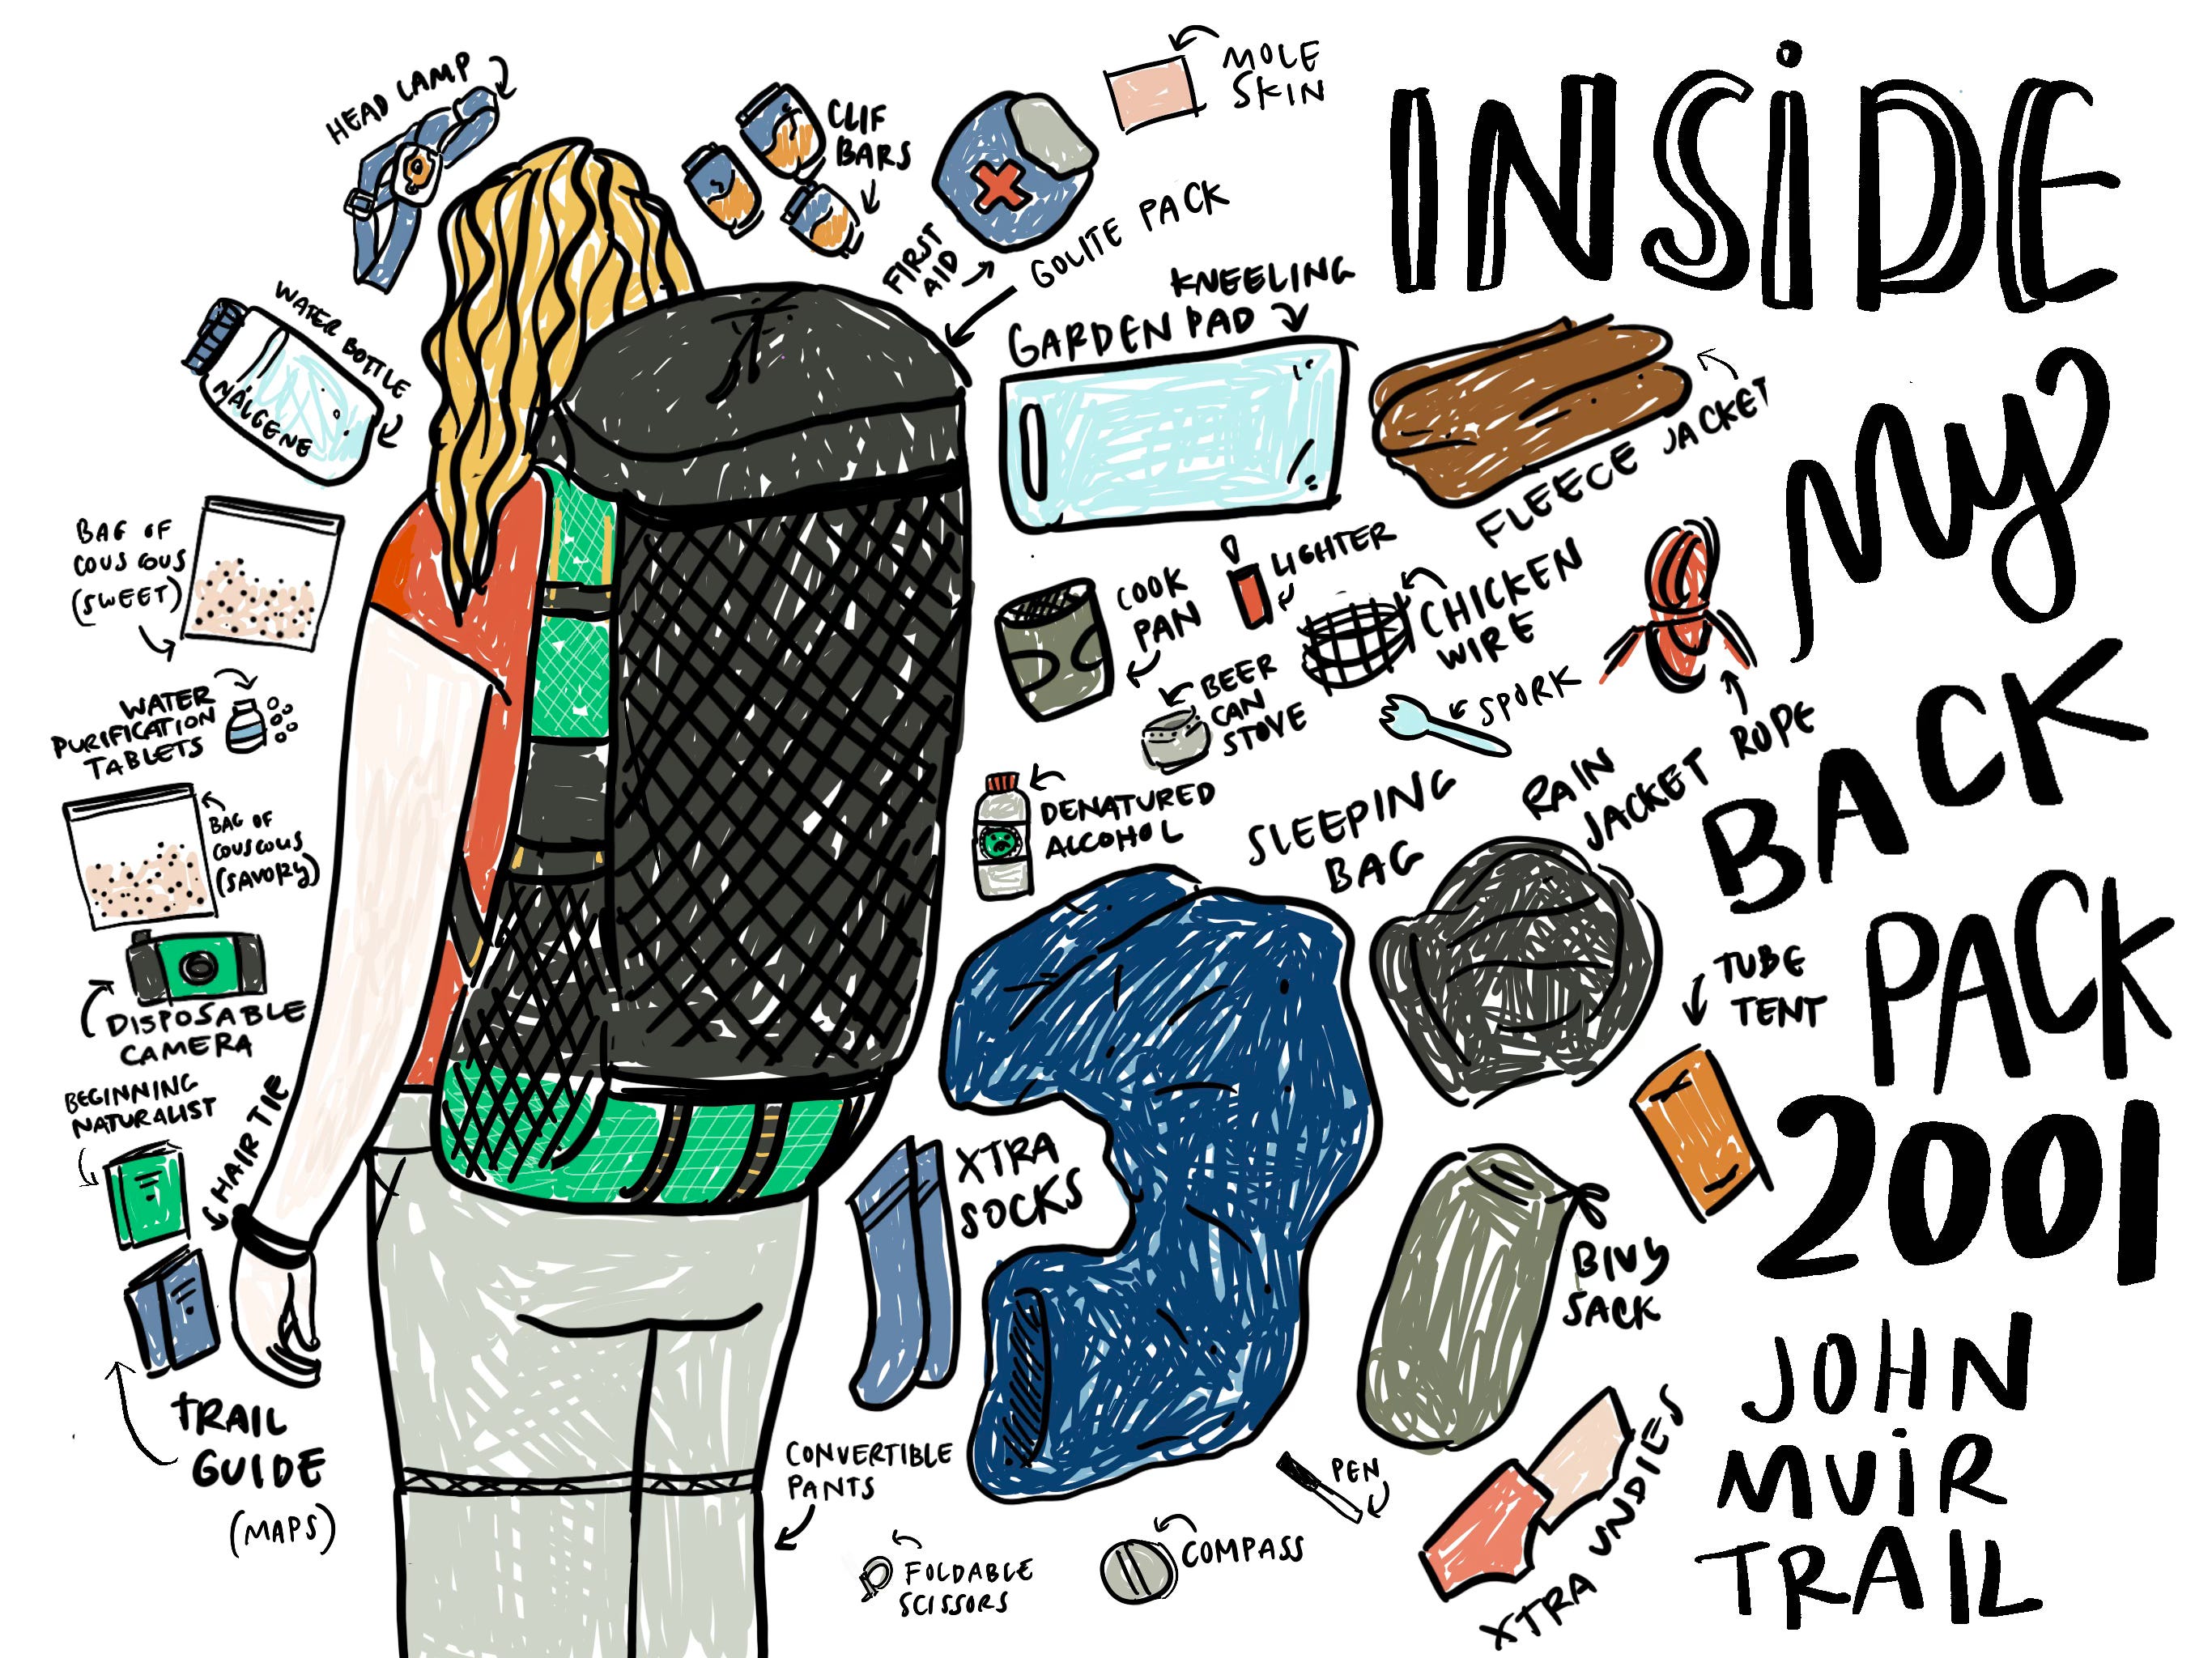 INSIDE
my
BACK
PACK
2001
JOHN
MUIR
TRAIL
HEAD LAMP
CLIF
BARS
MOLE
SKIN
FIRST
AID
GOLITE PACK
WATER BOTTLE
NALGENE
KNEELING
GARDEN PAD
FLEECE JACKET
BAG OF
COUS COUS
(SWEET)
COOK
PAN
LIGHTER
CHICKEN
WIRE
BEER
CAN
STOVE
SPORK
ROPE
WATER
PURIFICATION
TABLETS
DENATURED
ALCOHOL
SLEEPING
BAG
RAIN
JACKET
BAG OF
COUSCOUS
(SAVORY)
TUBE
TENT
DISPOSABLE
CAMERA
BEGINNING
NATURALIST
HAIR TIE
XTRA
SOCKS
BIVY
SACK
TRAIL
GUIDE
(MAPS)
CONVERTIBLE
PANTS
PEN
XTRA UNDIES
FOLDABLE
SCISSORS
COMPASS